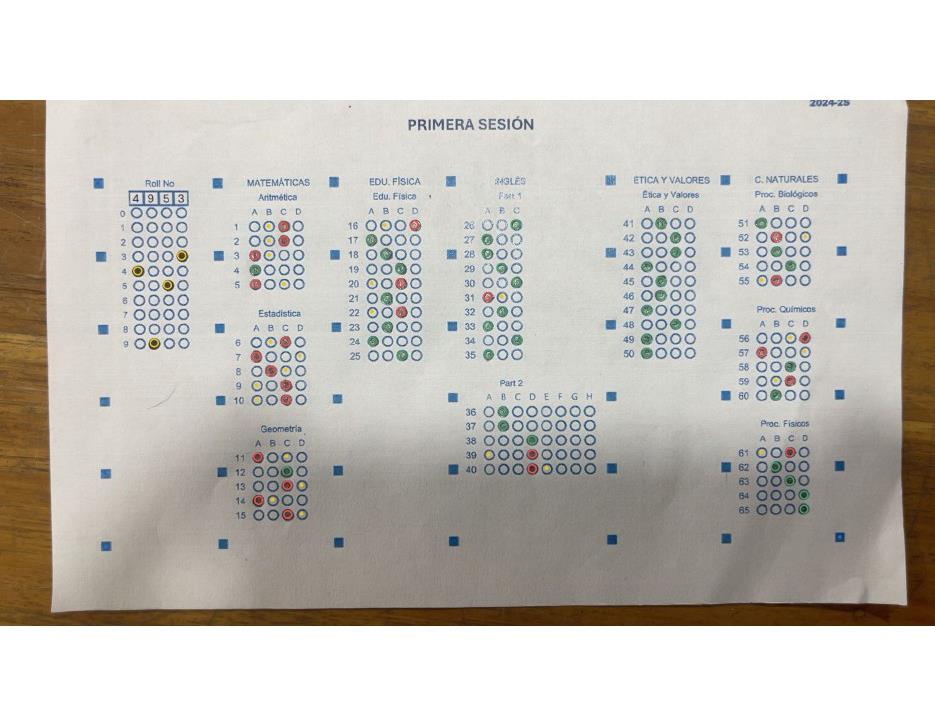 2024-25
PRIMERA SESIÓN
Roll No
4 9 5 3
0
1
2
3
4
5
6
7
8
9
MATEMÁTICAS
Aritmética
A B C D
1
2
3
4
5
Estadística
A B C D
6
7
8
9
10
Geometría
A B C D
11
12
13
14
15
EDU. FÍSICA
Edu. Física
A B C D
16
17
18
19
20
21
22
23
24
25
INGLÉS
Part 1
A B C
26
27
28
29
30
31
32
33
34
35
Part 2
A B C D E F G H
36
37
38
39
40
ÉTICA Y VALORES
Ética y Valores
A B C D
41
42
43
44
45
46
47
48
49
50
C. NATURALES
Proc. Biológicos
A B C D
51
52
53
54
55
Proc. Químicos
A B C D
56
57
58
59
60
Proc. Físicos
A B C D
61
62
63
64
65